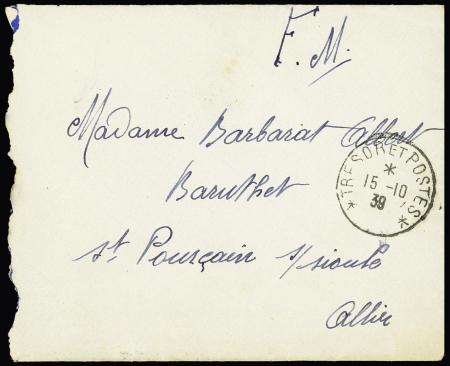 F.M.
Madame Barbarat Albert
Baruthet
St Pourçain s/sioule
Allier
* TRESOR ET POSTES *
*
15 -10
39